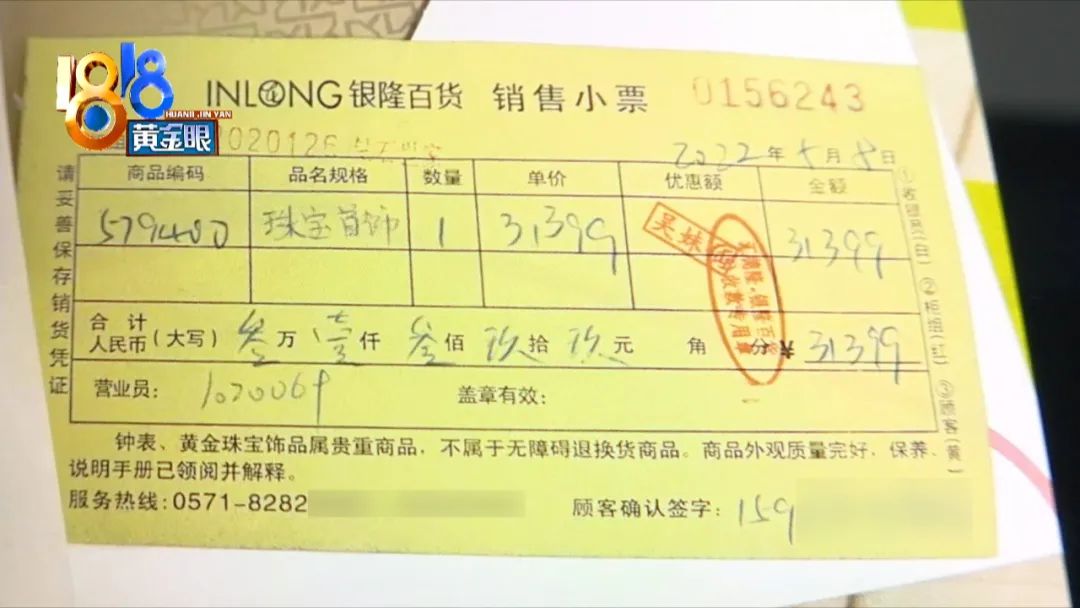 1818
HUANG JIN YAN
黄金眼
INLONG银隆百货 销售小票 0156243
1020126
2022年5月8日
商品编码 品名规格 数量 单价 优惠额 金额
579400 珠宝首饰 1 31399 31399
吴妹
合计
人民币(大写) 叁万壹仟叁佰玖拾玖元 角 分 31399
营业员: 1020069 盖章有效:
钟表、黄金珠宝饰品属贵重商品,不属于无障碍退换货商品。商品外观质量完好,保养、
说明手册已领阅并解释。
服务热线:0571-8282
顾客确认签字: 159
请妥善保存销货凭证
①收银员(白) ②柜组(红) ③顾客(黄)